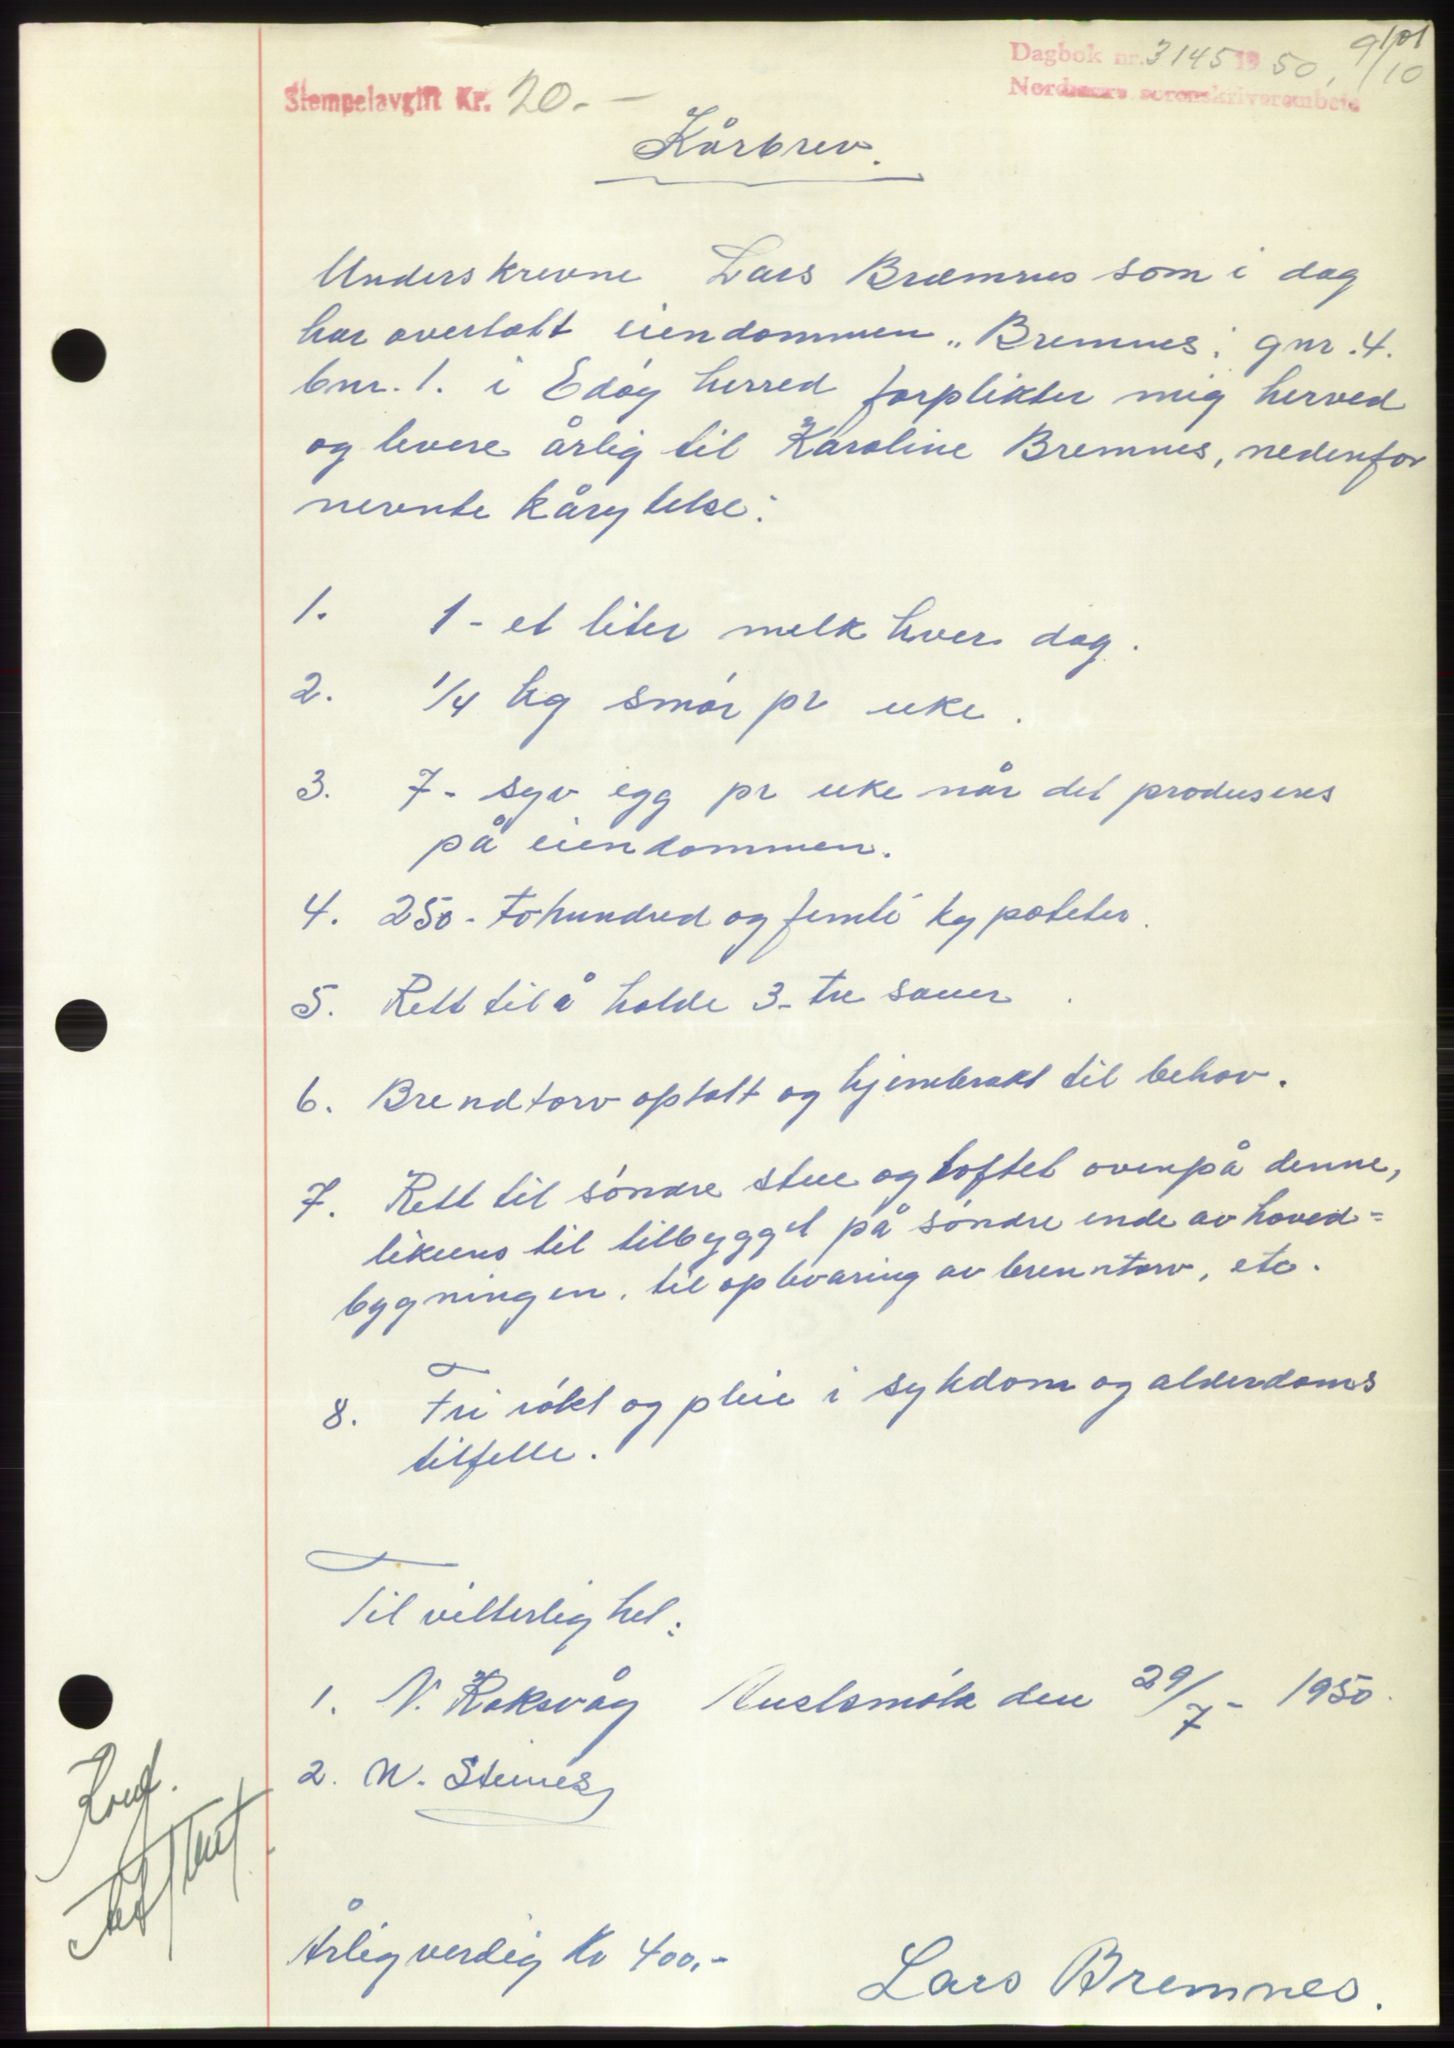 Dagbok nr. 3145 19 50, 9/10
101
Nordmøre sorenskriverembete
Stempelavgift Kr. 20.-
Kårbrev.
Underskrevne Lars Bremnes som i dag
har overtatt eiendommen „Bremnes“ gnr. 4.
bnr. 1. i Edøy herred forplikter mig herved
og levere årlig til Karoline Bremnes, nedenfor
nevnte kårytelse:
1. 1 - et liter melk hver dag.
2. 1/4 kg smør pr uke.
3. 7 - syv egg pr uke når det produseres
på eiendommen.
4. 250 - tohundred og femti kg poteter.
5. Rett til å holde 3 - tre sauer.
6. Brendtorv optatt og hjembrakt til behov.
7. Rett til søndre stue og loftet ovenpå denne,
likeens til tilbygget på søndre ende av hoved=
bygningen. til opbevaring av brenntorv, etc.
8. Fri røkt og pleie i sykdom og alderdoms
tilfelle.
Til vitterlighet:
1. N. Roksvåg Kuelsmøla den 29/7 - 1950.
2. N. Steines
Konf.
Årlig verdig Kr 400,-
Lars Bremnes.